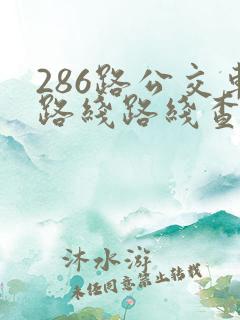 286路公交车
路线路线查
沐水游
未经同意禁止转载